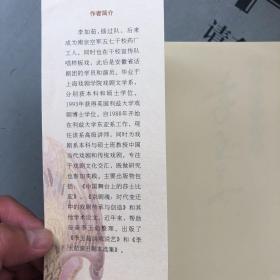 作者简介
李如茹，插过队，后来
成为南京空军五七干校药厂
工人，同时也在干校宣传队
唱样板戏，此后是安徽省话
剧团的学员和演员。毕业于
上海戏剧学院戏剧文学系，
分别获本科和硕士学位，
1993年获得英国利兹大学戏
剧博士学位。自1988年开始
在利兹大学东亚系工作，现
任该系高级讲师，同时为戏
剧系本科与硕士班教授中国
当代戏剧和传统戏剧，专注
于戏剧文化交汇，既做研究
也参加实践。主要出版物包
括：《中国舞台上的莎士比
亚》、《京剧魂：时代变迁
中的戏剧传承与创造》和其
他学术论文。近年来，帮助
母亲李玉茹整理、出版了
《李玉茹谈戏说艺》和《李
玉茹演出剧本选集》。
请